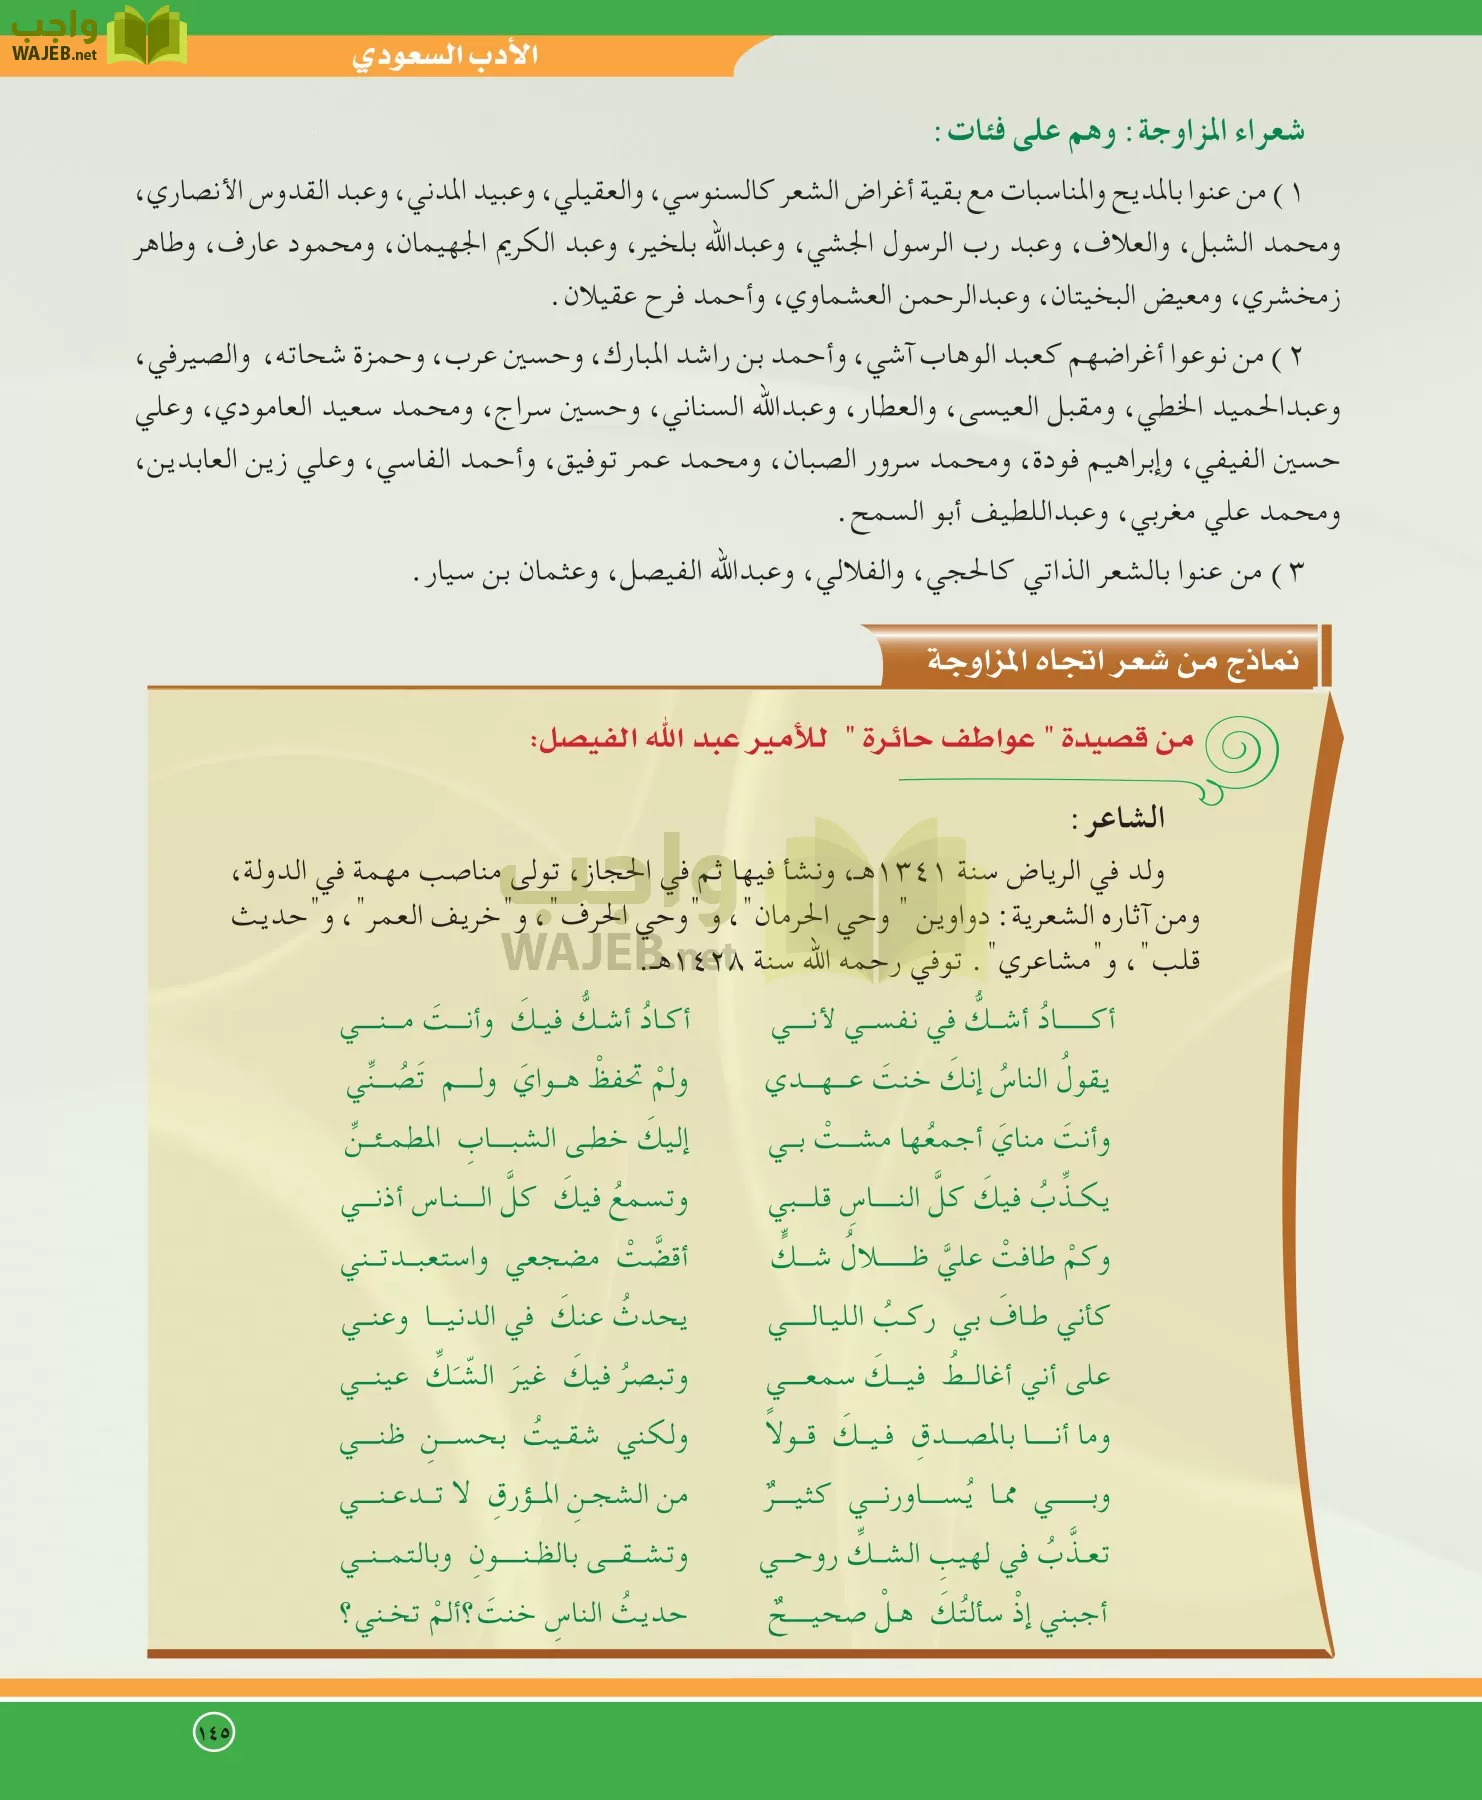 واجب
WAJEB.net
الأدب السعودي
شعراء المزاوجة: وهم على فئات:
١) من عنوا بالمديح والمناسبات مع بقية أغراض الشعر كالسنوسي، والعقيلي، وعبيد المدني، وعبد القدوس الأنصاري،
ومحمد الشبل، والعلاف، وعبد رب الرسول الجشي، وعبدالله بلخير، وعبد الكريم الجهيمان، ومحمود عارف، وطاهر
زمخشري، ومعيض البخيتان، وعبدالرحمن العشماوي، وأحمد فرح عقيلان.
٢) من نوعوا أغراضهم كعبد الوهاب آشي، وأحمد بن راشد المبارك، وحسين عرب، وحمزة شحاته، والصيرفي،
وعبدالحميد الخطي، ومقبل العيسى، والعطار، وعبدالله السناني، وحسين سراج، ومحمد سعيد العامودي، وعلي
حسين الفيفي، وإبراهيم فودة، ومحمد سرور الصبان، ومحمد عمر توفيق، وأحمد الفاسي، وعلي زين العابدين،
ومحمد علي مغربي، وعبداللطيف أبو السمح.
٣) من عنوا بالشعر الذاتي كالحجي، والفلالي، وعبدالله الفيصل، وعثمان بن سيار.
نماذج من شعر اتجاه المزاوجة
من قصيدة " عواطف حائرة " للأمير عبد الله الفيصل:
الشاعر:
ولد في الرياض سنة ١٣٤١هـ، ونشأ فيها ثم في الحجاز، تولى مناصب مهمة في الدولة،
ومن آثاره الشعرية: دواوين " وحي الحرمان"، و "وحي الحرف"، و"خريف العمر"، و"حديث
قلب"، و"مشاعري". توفي رحمه الله سنة ١٤٢٨هـ.
واجب
WAJEB.net
أكـــادُ أشكُّ في نفسي لأني أكادُ أشكُّ فيكَ وأنتَ منـي
يقولُ الناسُ إنكَ خنتَ عـهدي ولمْ تحفظْ هوايَ ولـم تَصُنِّي
وأنتَ منايَ أجمعُها مشتْ بي إليكَ خطى الشبابِ المطمئنِّ
يكذِّبُ فيكَ كلَّ الناسِ قلبي وتسمعُ فيكَ كلَّ الناس أذني
وكمْ طافتْ عليَّ ظـلالُ شكٍّ أقضَّتْ مضجعي واستعبدتني
كأني طافَ بي ركبُ الليالـي يحدثُ عنكَ في الدنيا وعني
على أني أغالطُ فيكَ سمعي وتبصرُ فيكَ غيرَ الشَّكِّ عيني
وما أنا بالمصدقِ فيكَ قولاً ولكني شقيتُ بحسنِ ظني
وبـي مما يُساورني كثيرٌ من الشجنِ المؤرقِ لا تدعني
تعذَّبُ في لهيبِ الشكِّ روحي وتشقى بالظنونِ وبالتمني
أجبني إذْ سألتُكَ هلْ صحيحٌ حديثُ الناسِ خنتَ؟ألمْ تخني؟
١٤٥